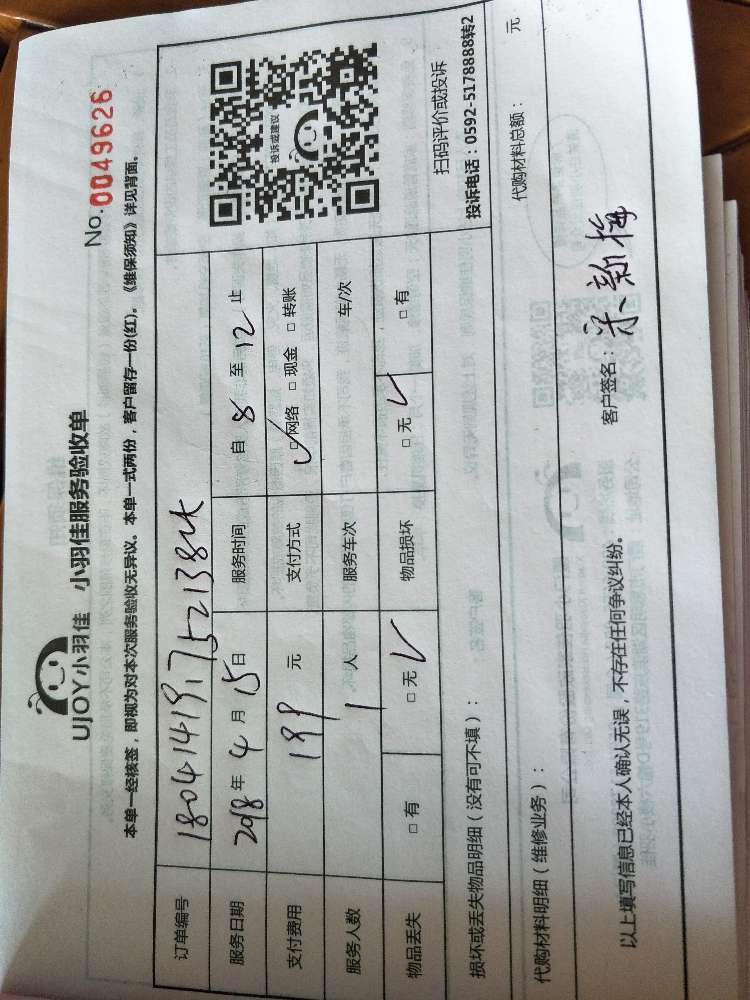 UJOY小羽佳 小羽佳服务验收单
No.0049626
本单一经核签，即视为对本次服务验收无异议。本单一式两份，客户留存一份(红)。《维保须知》详见背面。
订单编号
服务日期 2018年4月15日 服务时间 自8至12止
支付费用 199元 支付方式 □网络 □现金 □转账
服务人数 1人 服务车次 车/次
物品丢失 □有 □无 物品损坏 □无 □有
投诉或建议
扫码评价或投诉
投诉电话：0592-5178888转2
损坏或丢失物品明细（没有可不填）：
代购材料明细（维修业务）： 代购材料总额： 元
以上填写信息已经本人确认无误，不存在任何争议纠纷。 客户签名：